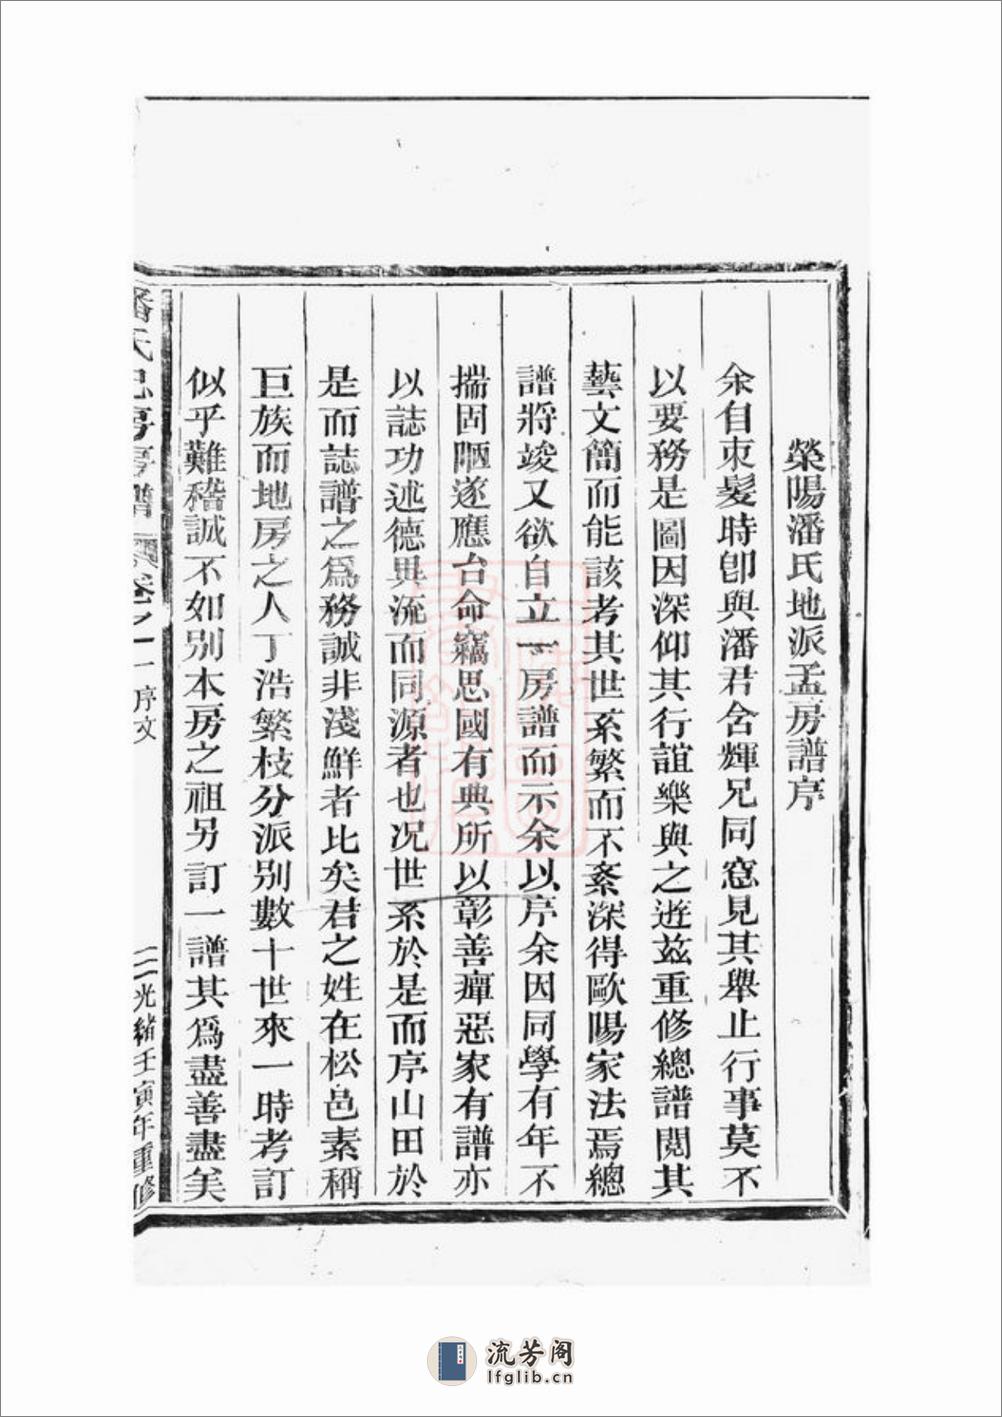 榮陽潘氏地派孟房譜序
余自朿髮時卽與潘君含輝兄同窓見其舉止行事莫不
以要務是圖因深仰其行誼樂與之逰茲重修總譜閱其
藝文簡而能該考其世系繁而不紊深得歐陽家法焉總
譜將竣又欲自立一房譜而示余以序余因同學有年不
揣固陋遂應台命竊思國有典所以彰善癉惡家有譜亦
以誌功述德異流而同源者也况世系於是而序山田於
是而誌譜之爲務誠非淺鮮者比矣君之姓在松邑素稱
巨族而地房之人丁浩繁枝分派别數十世來一時考訂
似乎難稽誠不如别本房之祖另訂一譜其爲盡善盡美
潘氏 房 譜 卷之一 序文 二 光緒壬寅年重修
流芳阁
lfglib.cn